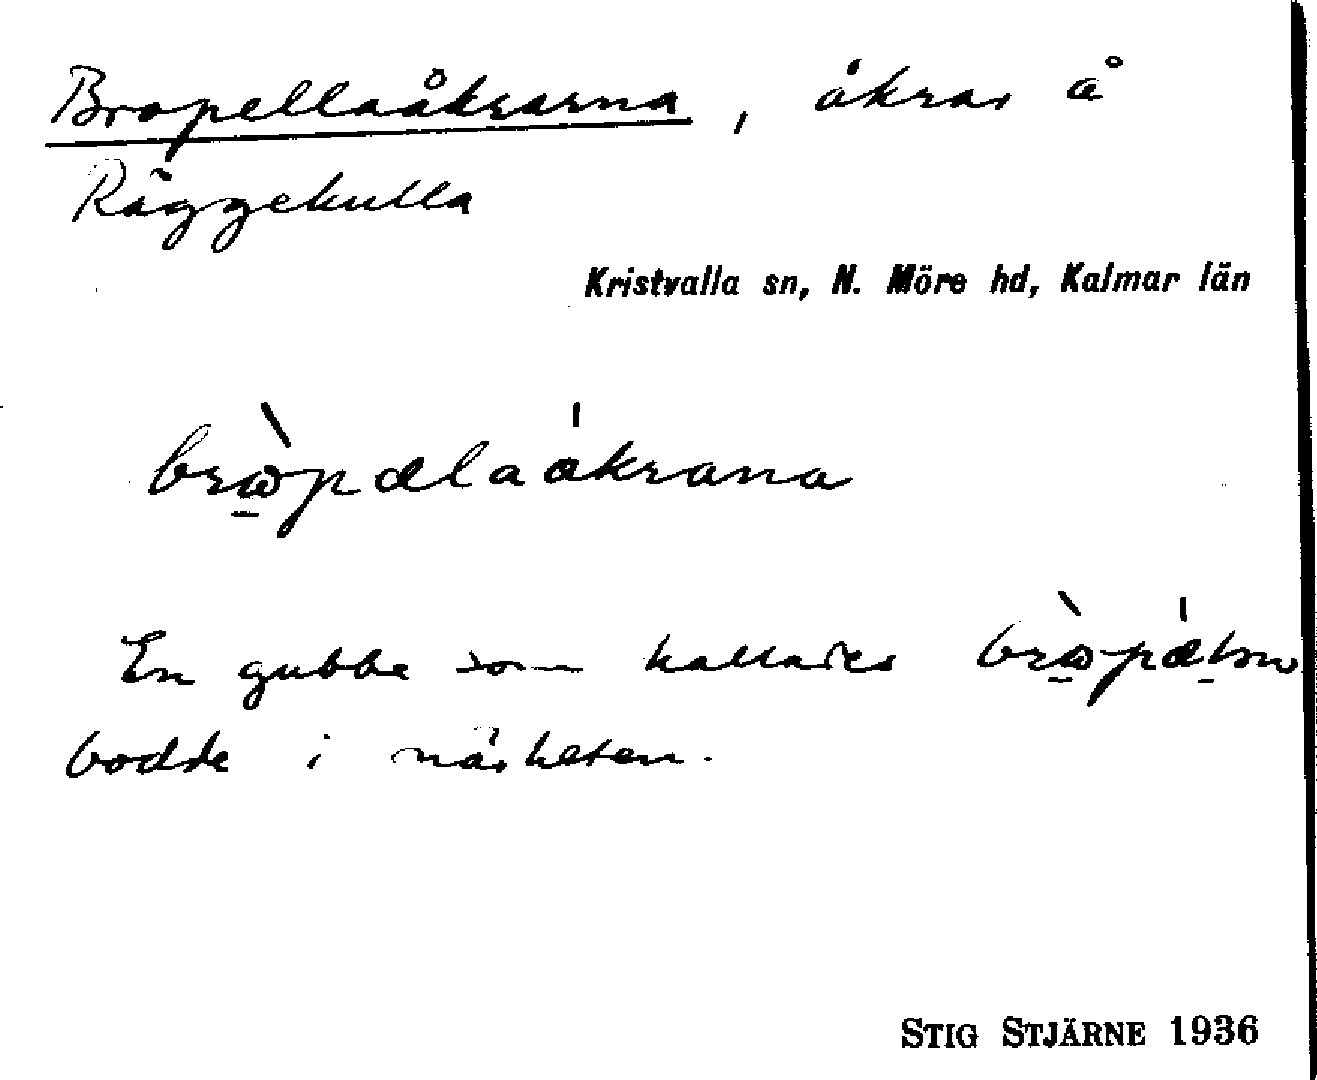 Bropellaåkrarna, åkrar å
Räggekulla
Kristvalla sn, N. Möre hd, Kalmar län
brὼ̱pælaåkrana
En gubbe som kallades
bodde i närheten.
STIG STJÄRNE 1936